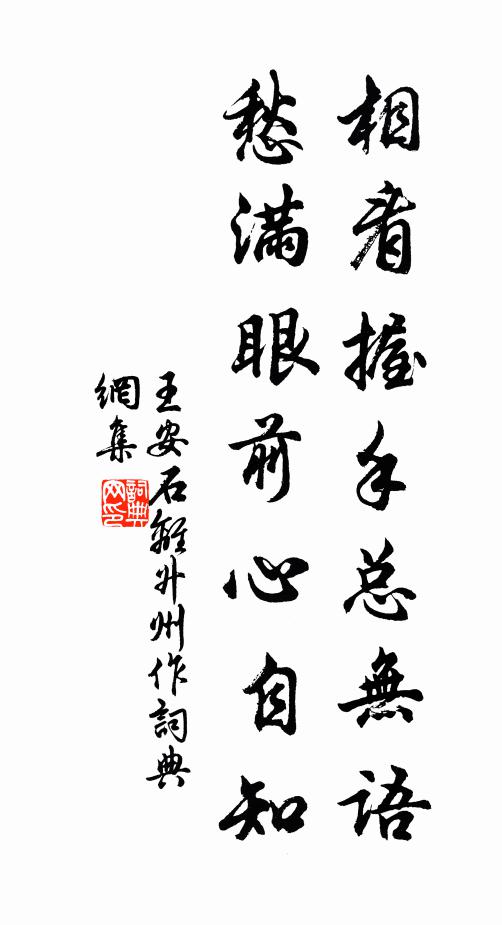 相看握手总無語
愁满眼前心自知
王安石離升州作詞典
網集
詞典
网印